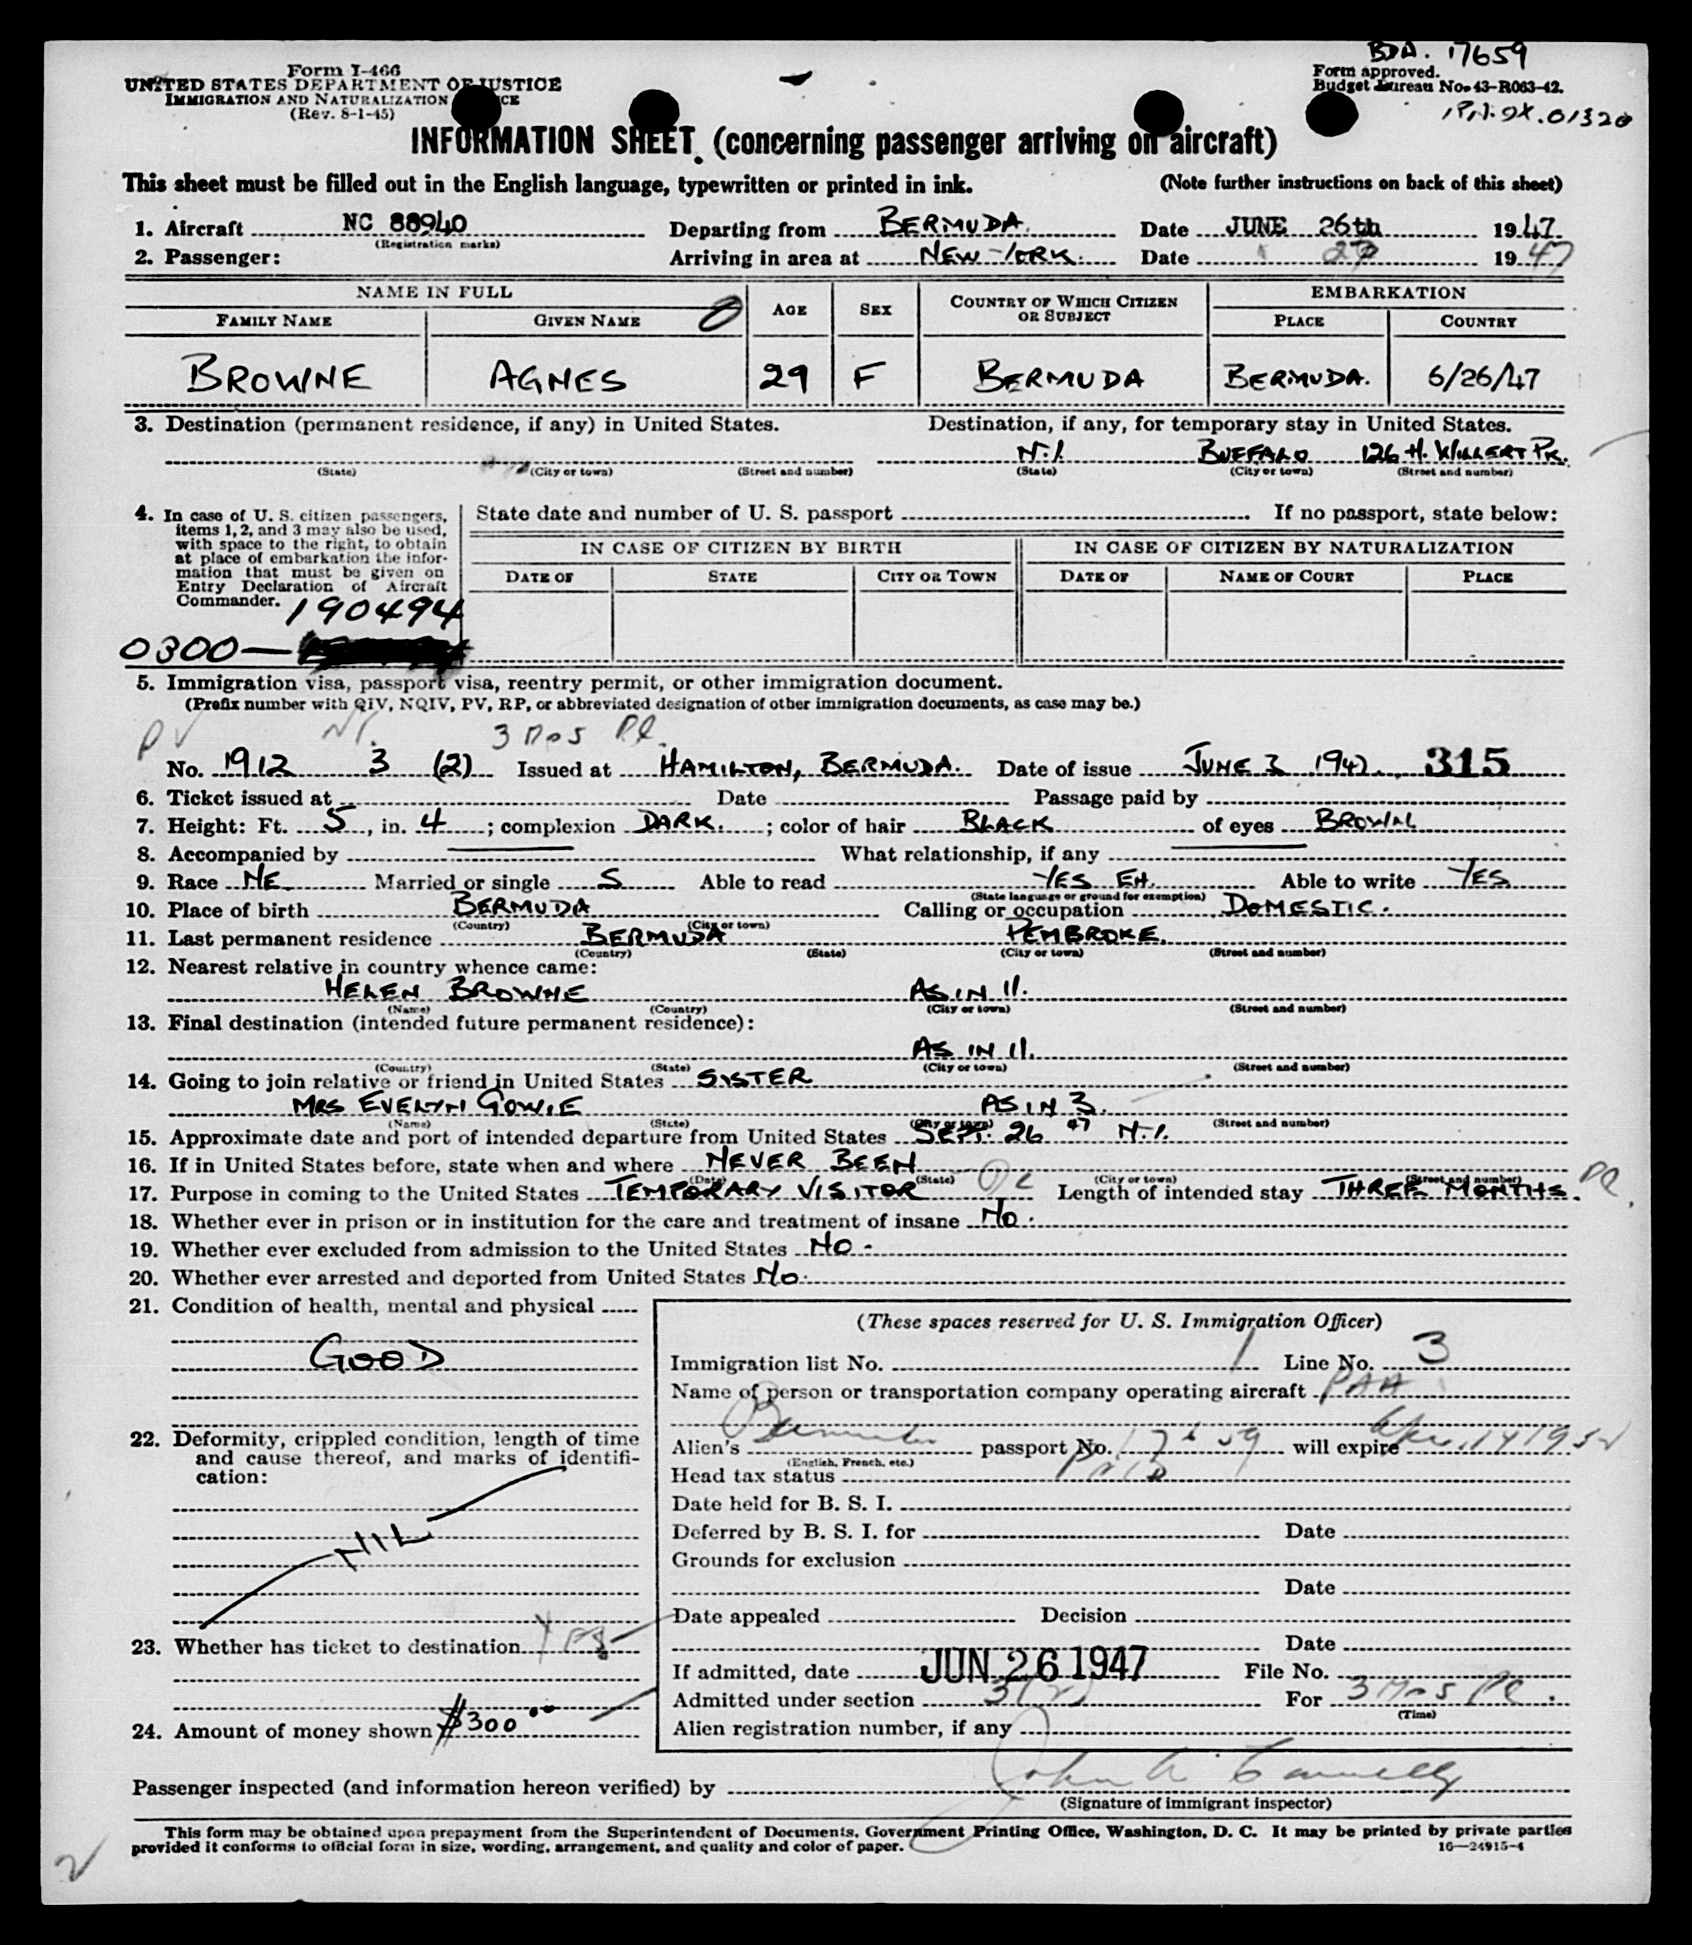 BDA. 17659
Form I-466
UNITED STATES DEPARTMENT OF JUSTICE
IMMIGRATION AND NATURALIZATION
(Rev. 8-1-45)
Form approved.
Budget Bureau No. 43-R063-42.
01320
INFORMATION SHEET (concerning passenger arriving on aircraft)
This sheet must be filled out in the English language, typewritten or printed in ink. (Note further instructions on back of this sheet)
1. Aircraft NC 88940 Departing from BERMUDA. Date JUNE 26th 1947
(Registration marks)
2. Passenger: Arriving in area at NEW-YORK. Date 1947
NAME IN FULL AGE SEX COUNTRY OF WHICH CITIZEN OR SUBJECT EMBARKATION
FAMILY NAME GIVEN NAME PLACE COUNTRY
BROWNE AGNES 29 F BERMUDA BERMUDA. 6/26/47
3. Destination (permanent residence, if any) in United States. Destination, if any, for temporary stay in United States.
N.Y. BUFFALO 126 H. WILLERT PK.
(State) (City or town) (Street and number) (State) (City or town) (Street and number)
4. In case of U. S. citizen passengers, items 1, 2, and 3 may also be used, with space to the right, to obtain at place of embarkation the information that must be given on Entry Declaration of Aircraft Commander.
State date and number of U. S. passport If no passport, state below:
IN CASE OF CITIZEN BY BIRTH IN CASE OF CITIZEN BY NATURALIZATION
DATE OF STATE CITY OR TOWN DATE OF NAME OF COURT PLACE
190494
0300—
5. Immigration visa, passport visa, reentry permit, or other immigration document.
(Prefix number with QIV, NQIV, PV, RP, or abbreviated designation of other immigration documents, as case may be.)
PV 3 Mos Pl.
No. 1912 3 (2) Issued at HAMILTON, BERMUDA. Date of issue JUNE 3 1947. 315
6. Ticket issued at Date Passage paid by
7. Height: Ft. 5, in. 4; complexion DARK.; color of hair BLACK of eyes BROWN
8. Accompanied by What relationship, if any
9. Race NE. Married or single S Able to read YES EH. Able to write YES
(State language or ground for exemption)
10. Place of birth BERMUDA Calling or occupation DOMESTIC.
(Country) (City or town)
11. Last permanent residence BERMUDA PEMBROKE.
(Country) (State) (City or town) (Street and number)
12. Nearest relative in country whence came:
HELEN BROWNE AS IN 11.
(Name) (Country) (City or town) (Street and number)
13. Final destination (intended future permanent residence):
AS IN 11.
(Country) (State) (City or town) (Street and number)
14. Going to join relative or friend in United States SISTER
MRS EVELYN GOWIE AS IN 3.
(Name) (State) (City or town) (Street and number)
15. Approximate date and port of intended departure from United States SEPT. 26 47 N.Y.
16. If in United States before, state when and where NEVER BEEN
(Date) (State) (City or town) (Street and number)
17. Purpose in coming to the United States TEMPORARY VISITOR Length of intended stay THREE MONTHS.
18. Whether ever in prison or in institution for the care and treatment of insane NO.
19. Whether ever excluded from admission to the United States NO-
20. Whether ever arrested and deported from United States NO.
21. Condition of health, mental and physical
GOOD
22. Deformity, crippled condition, length of time and cause thereof, and marks of identification:
NIL
23. Whether has ticket to destination Yes
24. Amount of money shown $300.00
(These spaces reserved for U. S. Immigration Officer)
Immigration list No. 1 Line No. 3
Name of person or transportation company operating aircraft PAA
Alien's Bermuda passport No. 17659 will expire
(English, French, etc.)
Head tax status
Date held for B. S. I.
Deferred by B. S. I. for Date
Grounds for exclusion
Date
Date appealed Decision
Date
If admitted, date JUN 26 1947 File No.
Admitted under section 3(2) For 3 Mos Pl.
(Time)
Alien registration number, if any
Passenger inspected (and information hereon verified) by
(Signature of immigrant inspector)
This form may be obtained upon prepayment from the Superintendent of Documents, Government Printing Office, Washington, D. C. It may be printed by private parties
provided it conforms to official form in size, wording, arrangement, and quality and color of paper. 16—24915-4